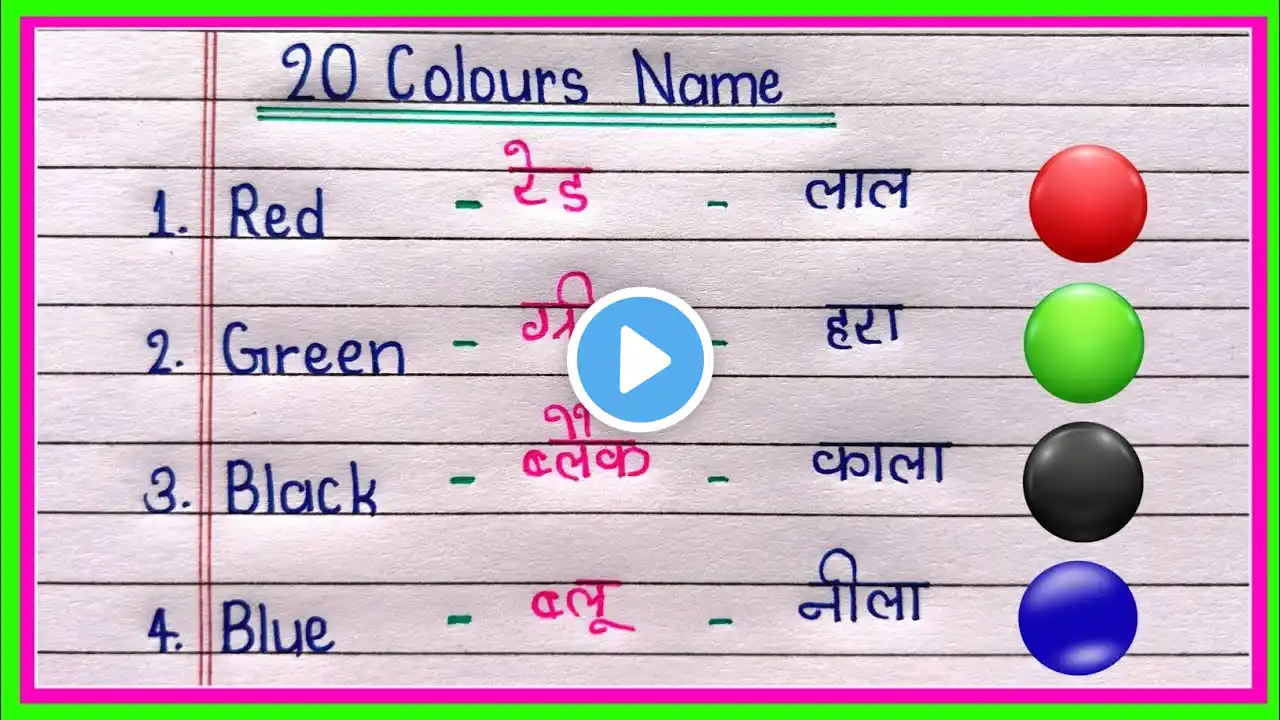 20 Colours Name
1. Red - रेड - लाल
2. Green - - हरा
3. Black - ब्लैक - काला
4. Blue - ब्लू - नीला